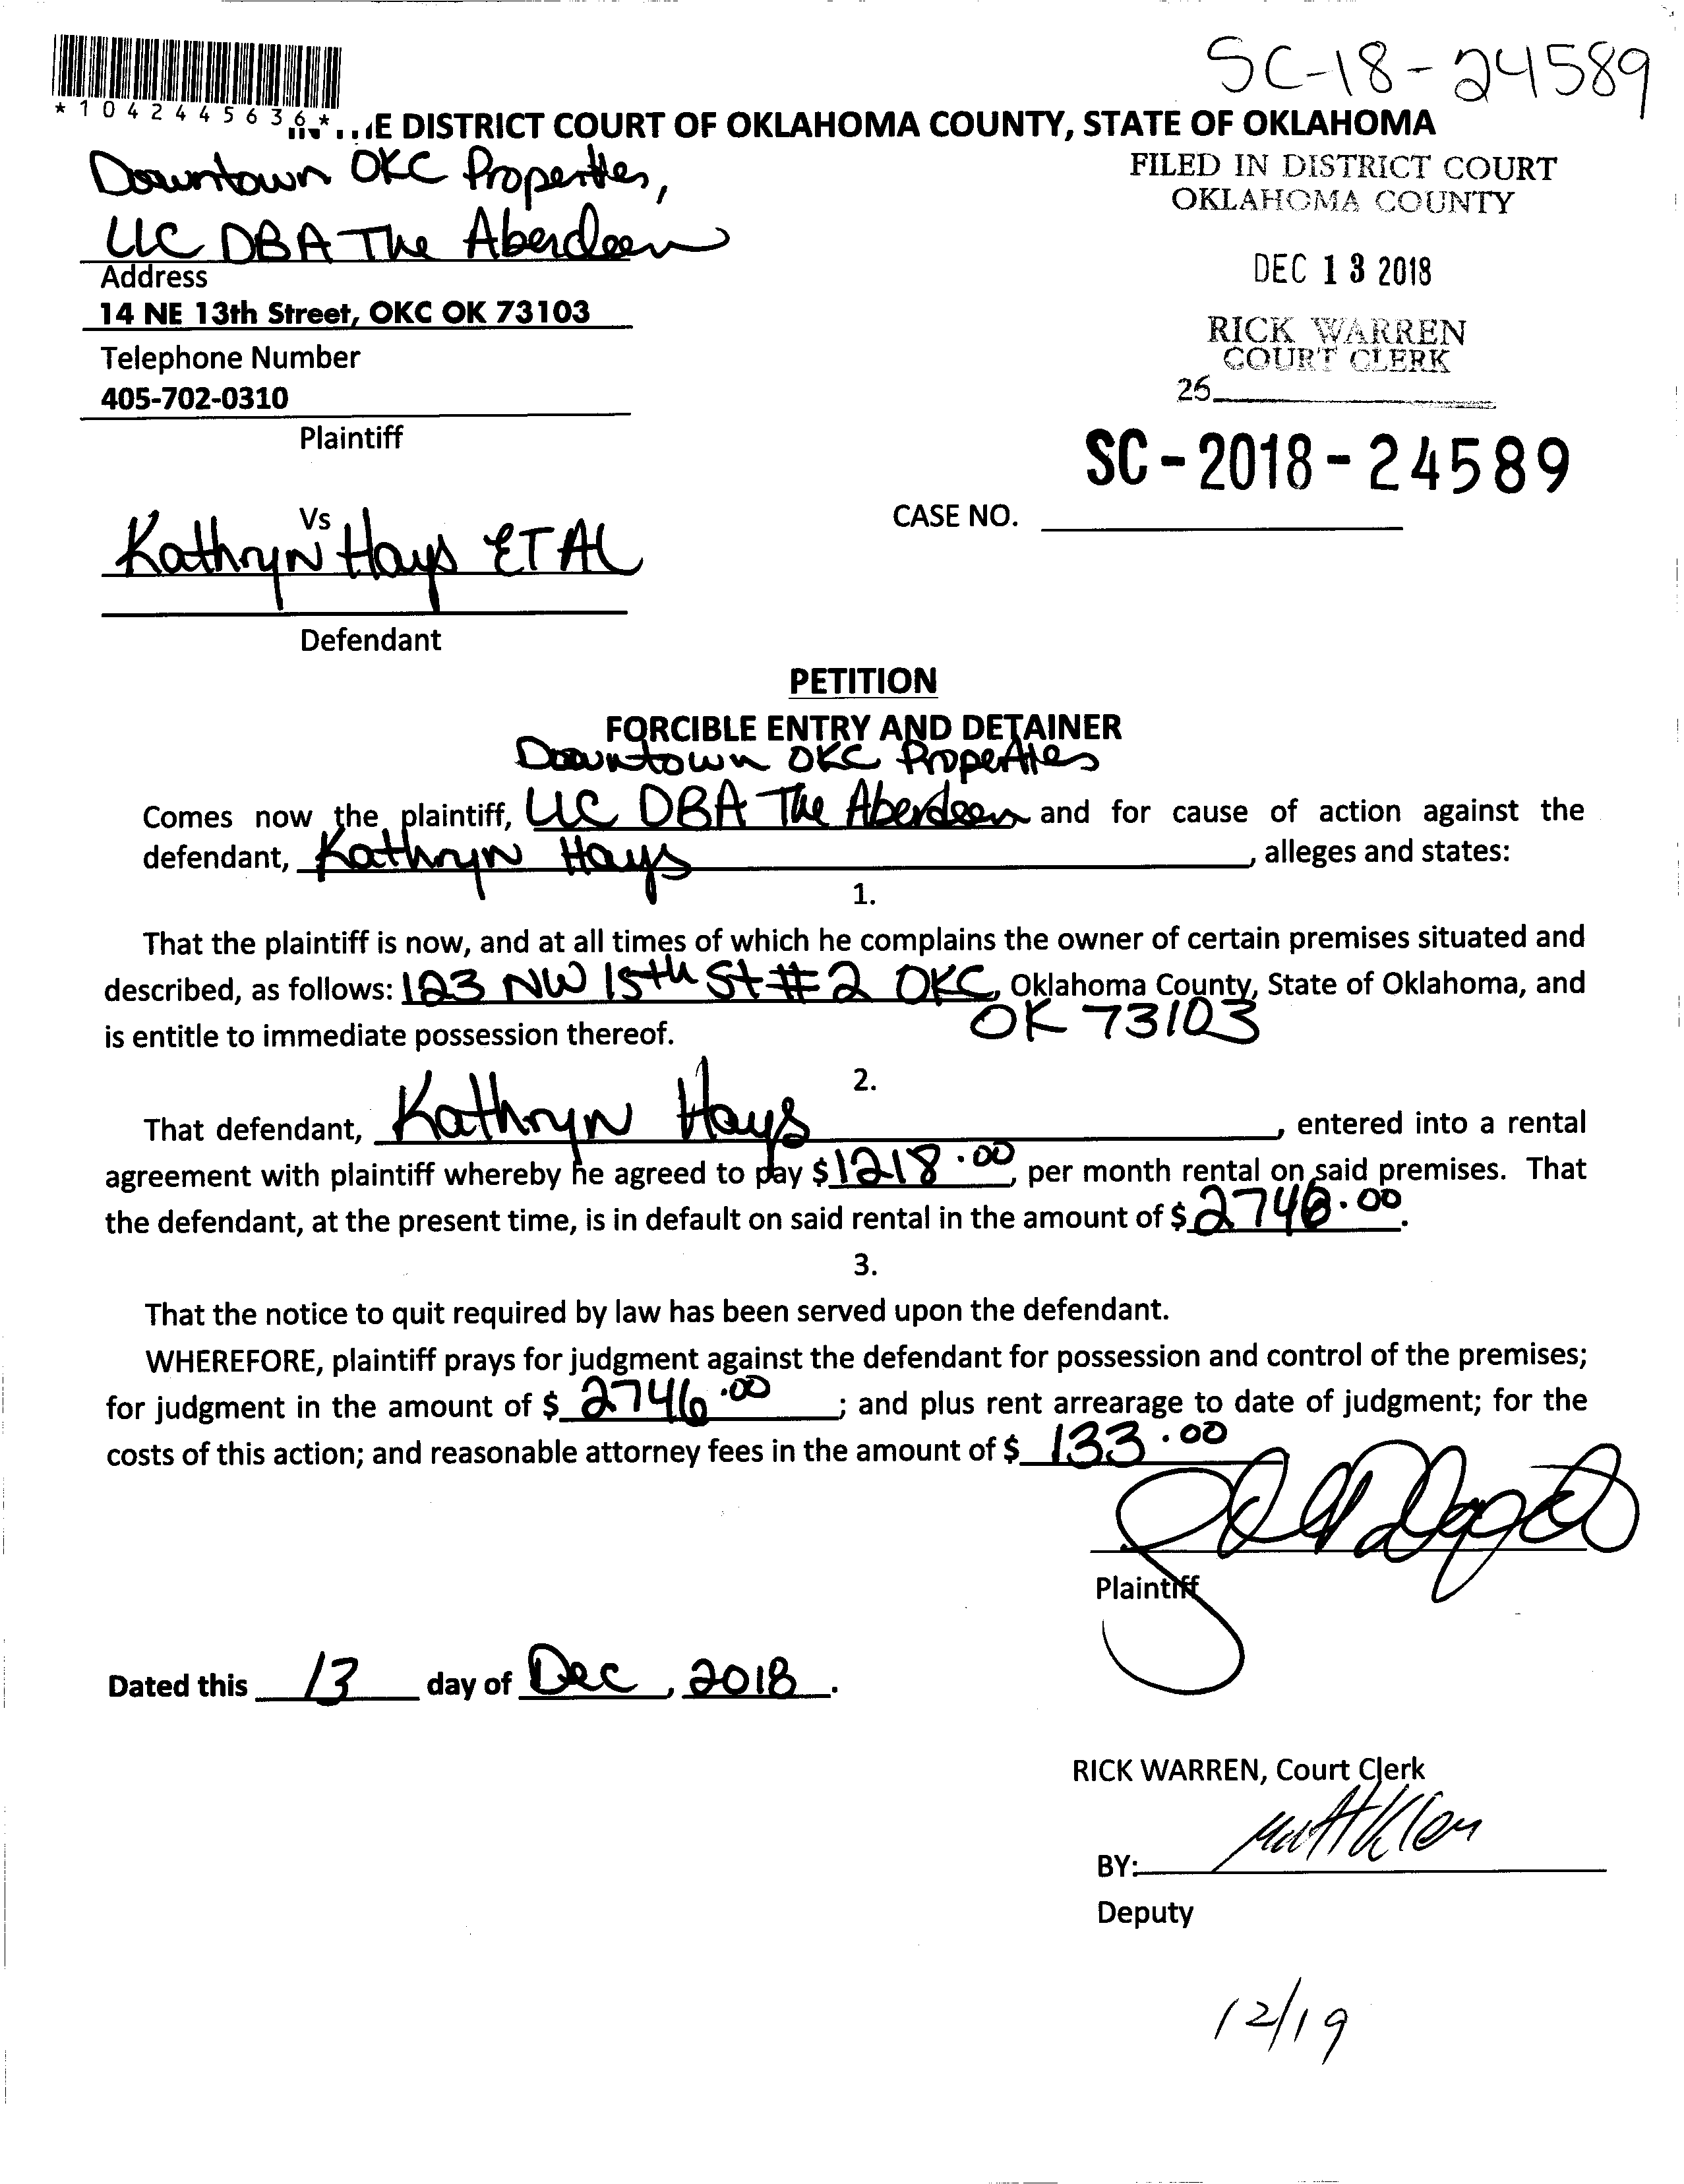 SC-18-24589
*1042445636*
E DISTRICT COURT OF OKLAHOMA COUNTY, STATE OF OKLAHOMA
Downtown OKC Properties,
LLC DBA The Aberdeen
Address
14 NE 13th Street, OKC OK 73103
Telephone Number
405-702-0310
Plaintiff
FILED IN DISTRICT COURT
OKLAHOMA COUNTY
DEC 13 2018
RICK WARREN
COURT CLERK
26
SC-2018-24589
CASE NO.
Vs
Kathryn Hays ET AL
Defendant
PETITION
FORCIBLE ENTRY AND DETAINER
Downtown OKC Properties
Comes now the plaintiff, LLC DBA The Aberdeen and for cause of action against the
defendant, Kathryn Hays, alleges and states:
1.
That the plaintiff is now, and at all times of which he complains the owner of certain premises situated and
described, as follows: 123 NW 15th St #2 OKC, Oklahoma County, State of Oklahoma, and
OK 73103
is entitle to immediate possession thereof.
2.
That defendant, Kathryn Hays, entered into a rental
agreement with plaintiff whereby he agreed to pay $1218.00, per month rental on said premises. That
the defendant, at the present time, is in default on said rental in the amount of $2746.00.
3.
That the notice to quit required by law has been served upon the defendant.
WHEREFORE, plaintiff prays for judgment against the defendant for possession and control of the premises;
for judgment in the amount of $ 2746.00; and plus rent arrearage to date of judgment; for the
costs of this action; and reasonable attorney fees in the amount of $ 133.00
Plaintiff
Dated this 13 day of Dec, 2018.
RICK WARREN, Court Clerk
BY:
Deputy
12/19